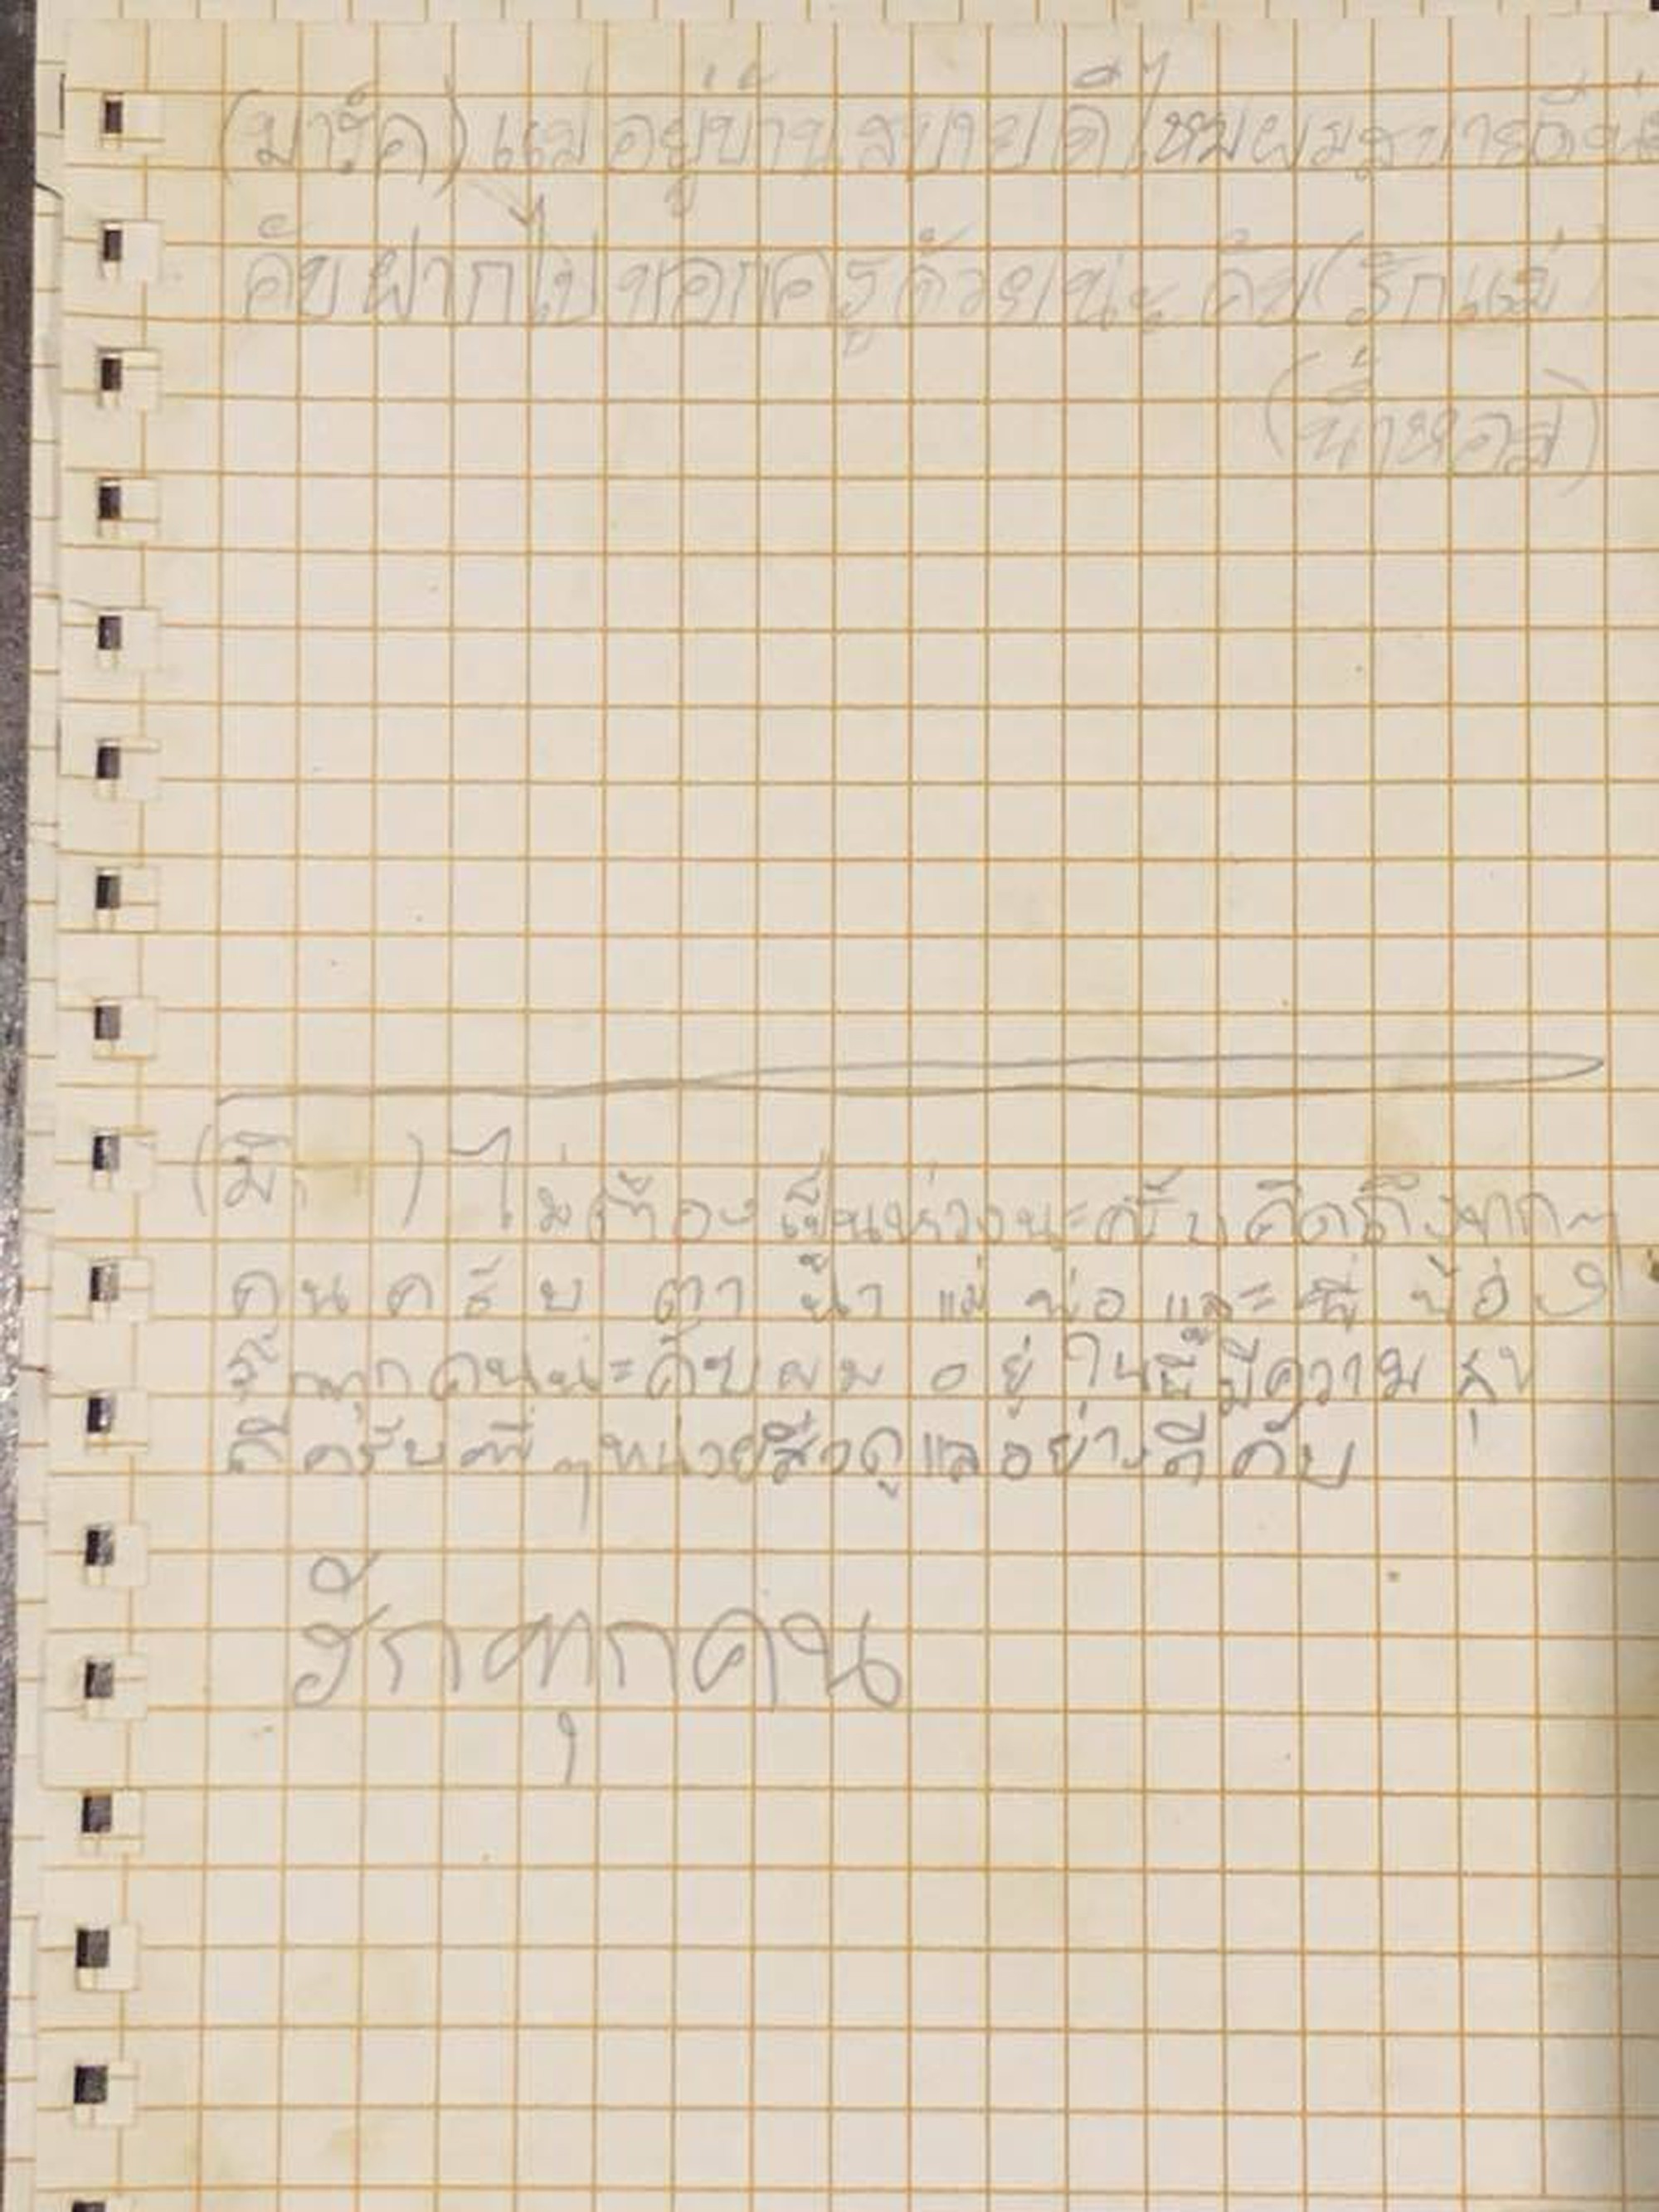 (มาร์ค) แม่อยู่บ้านสบายดีไหมผมสบายดี
คับฝากไปบอกครูด้วยนะคับ(รักแม่
(น้ำหอส)
(มิ ) ไม่ต้องเป็นห่วงนะครับคิดถึงทุกๆ
คนครับ ตา น้า แม่ พ่อ และ พี่ น้อง
รักทุกคนนะคับผม อยู่ในนี้มีความสุข
ดีครับพี่ๆหน่วยสีวดูแลอย่างดีคับ
รักทุกคน